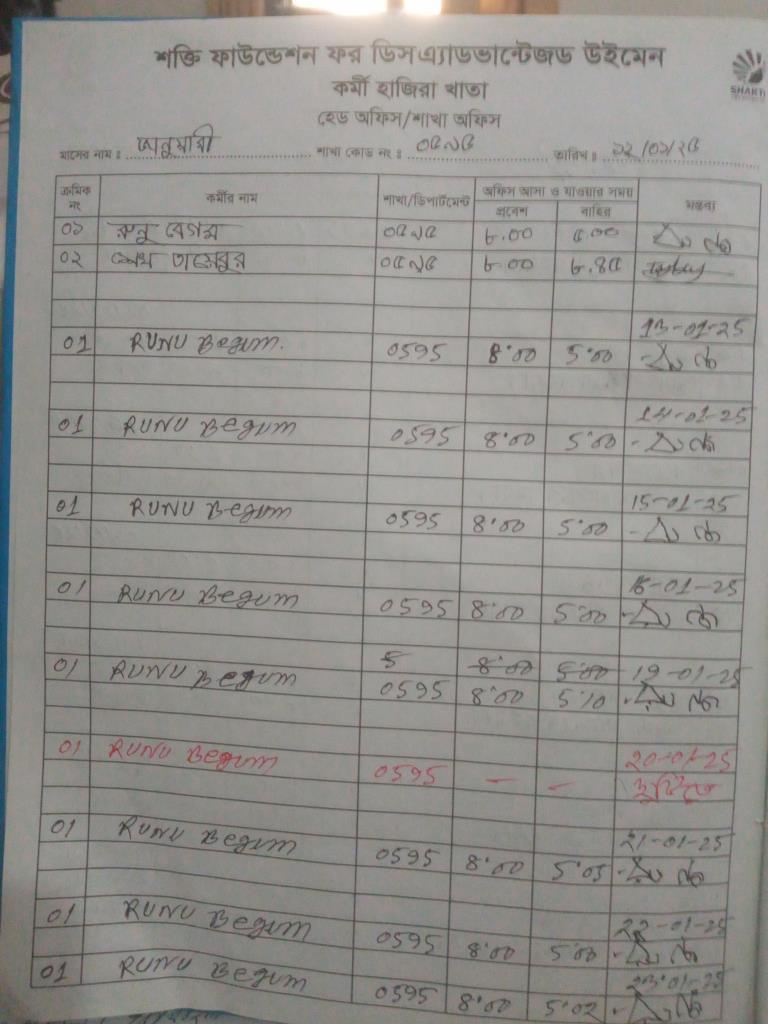 শক্তি ফাউন্ডেশন ফর ডিসএ্যাডভান্টেজড উইমেন
SHAKTI
কর্মী হাজিরা খাতা
হেড অফিস/শাখা অফিস
মাসের নাম ঃ জানুয়ারী শাখা কোড নং ঃ ০৫৯৫ তারিখ ঃ ১২/০১/২৫
ক্রমিক নং কর্মীর নাম শাখা/ডিপার্টমেন্ট অফিস আসা ও যাওয়ার সময় মন্তব্য
প্রবেশ বাহির
০১ রুনু বেগম ০৫৯৫ ৮.০০ ৫.০০
০২ শেখ ০৫৯৫ ৮.০০ ৮.৪৫
13-01-25
01 RUNU Begum. 0595 8:00 5:00
14-01-25
01 RUNU Begum 0595 8:00 5:00
15-01-25
01 RUNU Begum 0595 8:00 5:00
16-01-25
01 RUNU Begum 0595 8:00 5:00
5 8:00 5:00 19-01-25
01 RUNU Begum 0595 8:00 5:10
20-01-25
01 RUNU Begum 0595 — — ছুটিতে
21-01-25
01 RUNU Begum 0595 8:00 5:05
22-01-25
01 RUNU Begum 0595 8:00 5:00
23-01-25
01 RUNU Begum 0595 8:00 5:02